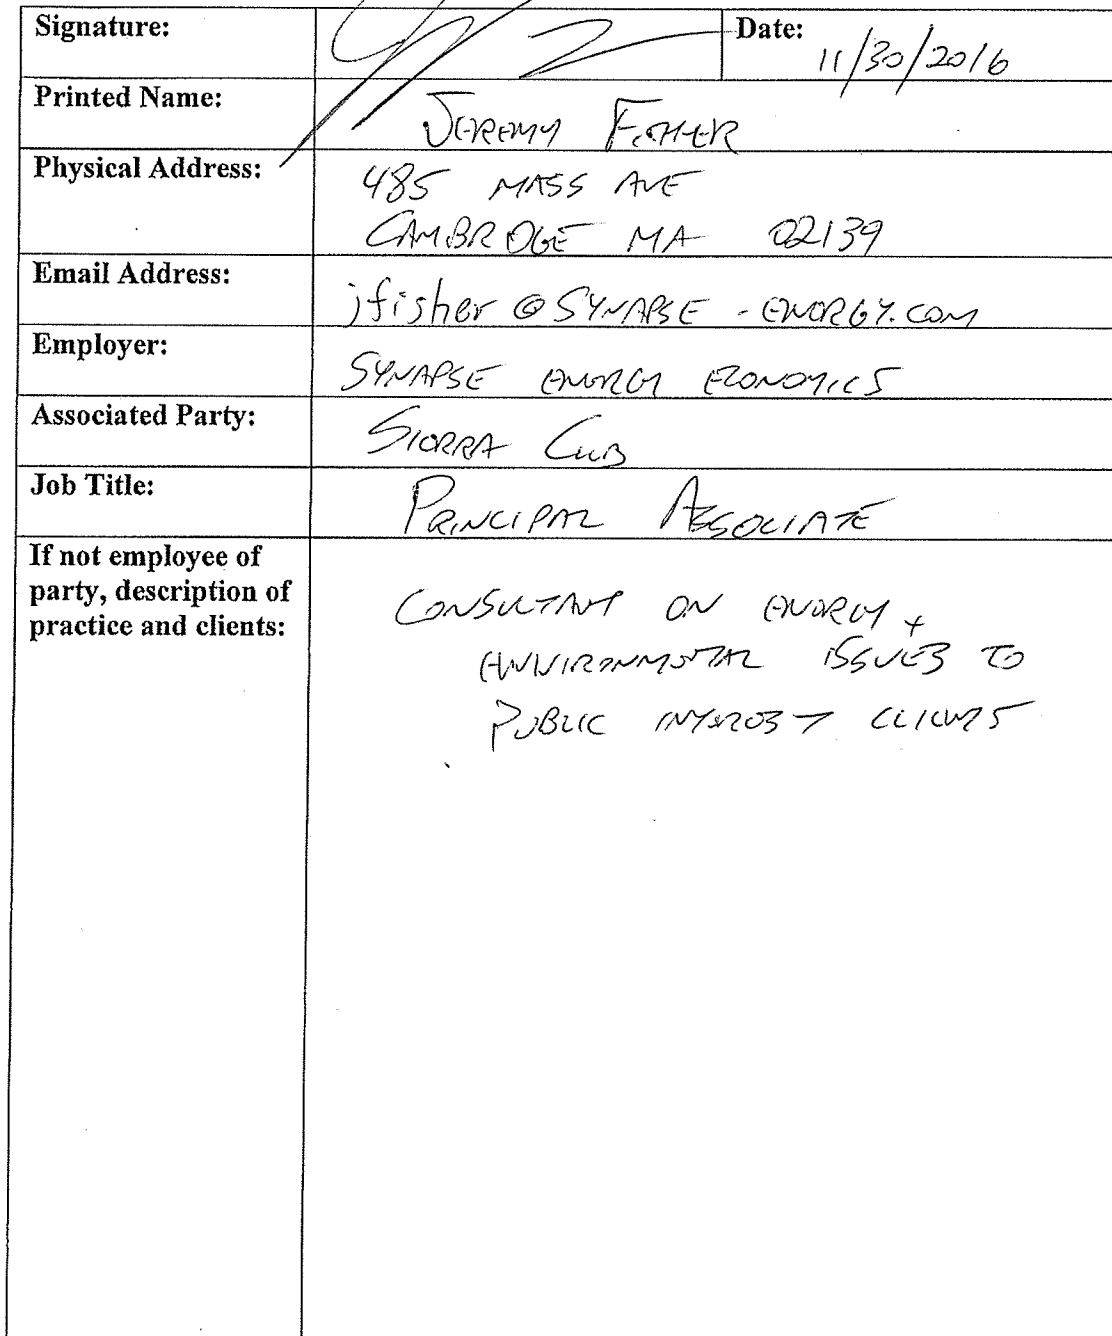 Signature:
Date: 11/30/2016
Printed Name: JEREMY FISHER
Physical Address: 485 MASS AVE
CAMBRIDGE MA 02139
Email Address: jfisher@SYNAPSE-ENERGY.COM
Employer: SYNAPSE ENERGY ECONOMICS
Associated Party: SIERRA CLUB
Job Title: PRINCIPAL ASSOCIATE
If not employee of
party, description of
practice and clients:
CONSULTANT ON ENERGY +
ENVIRONMENTAL ISSUES TO
PUBLIC INTEREST CLIENTS